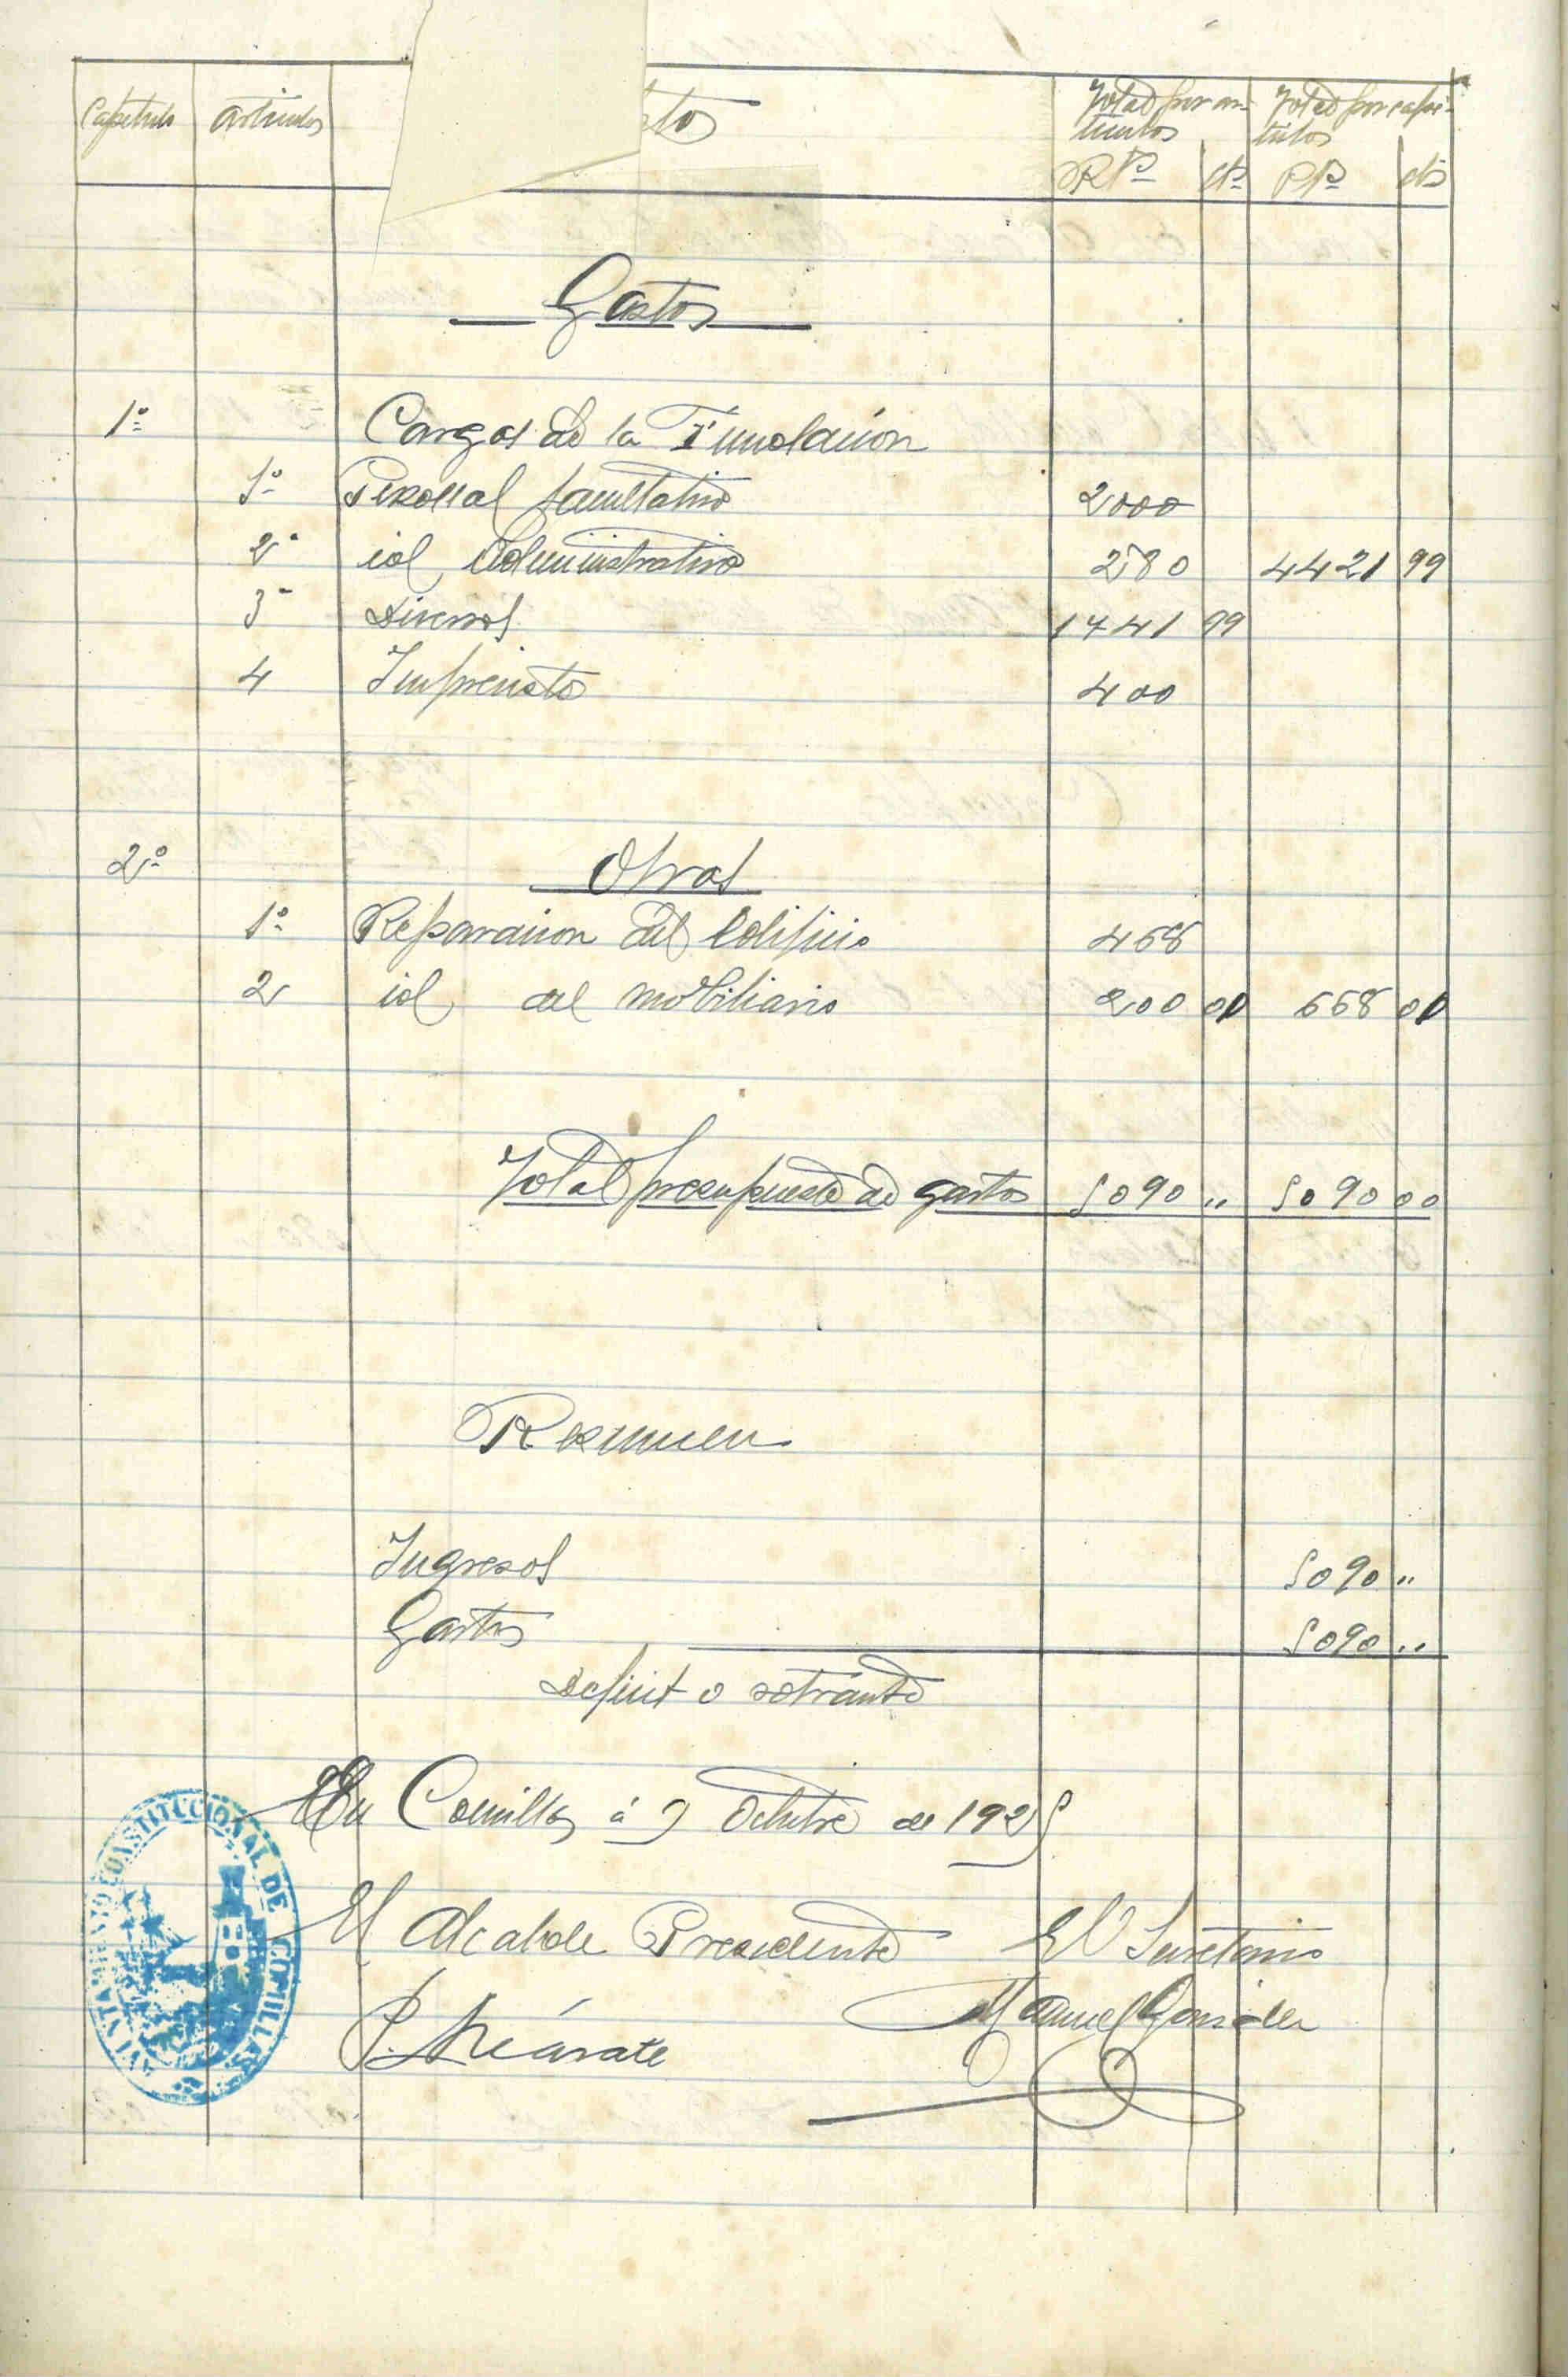 Capitulo Articulos to Total por ar- Total por capi-
ticulos tulos
Pts cts Pts cts
Gastos
1º Cargas de la Fundacion
1º Personal facultativo 2000
2º id Administrativo 280 4421 99
3º Diversos 1741 99
4 Imprevisto 400
2º Obras
1º Reparacion del Edificio 468
2 id del mobiliario 200 01 668 01
Total presupuesto de gastos 5090 " 5090 00
Resumen
Ingresos 5090 "
Gastos 5090 "
Deficit o sobrante
En Comillas á 9 Octubre de 1925
El Alcalde Presidente El Secretario
Manuel González
AYUNTAMIENTO CONSTITUCIONAL DE COMILLAS